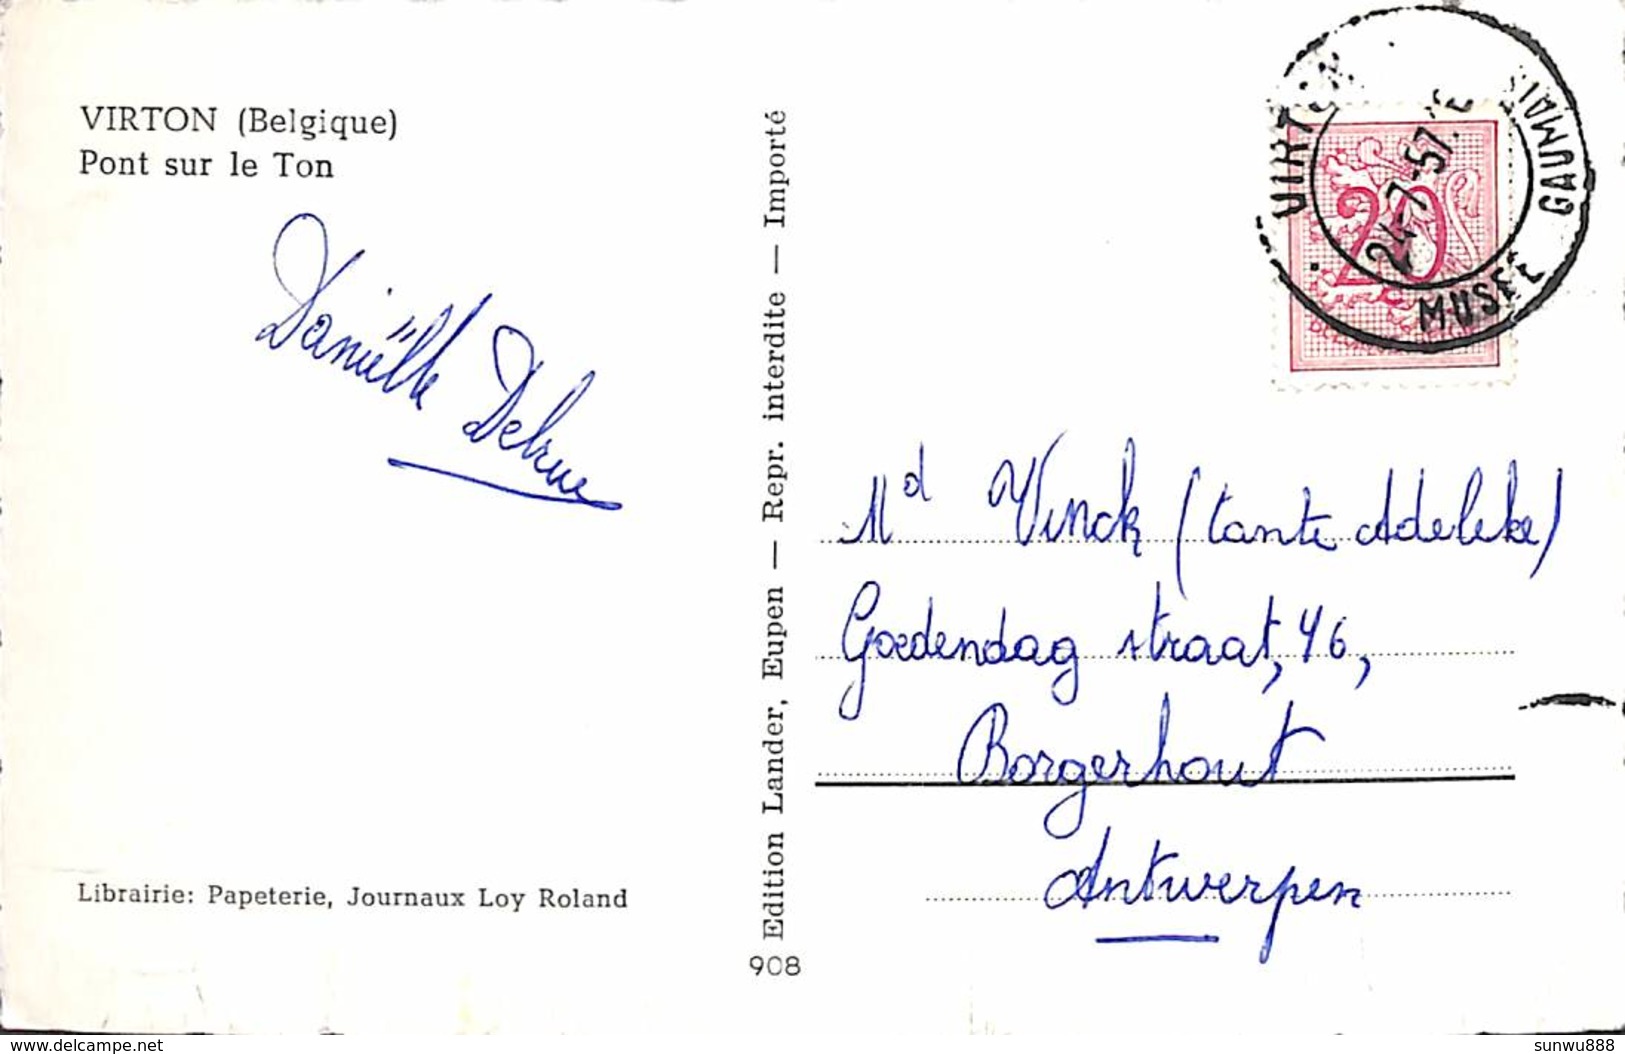 VIRTON (Belgique)
Pont sur le Ton
Daniëlle Delrue
Librairie: Papeterie, Journaux Loy Roland
Edition Lander, Eupen — Repr. interdite — Importé
908
VIRTON
24-7-57
MUSEE GAUMAIS
20
Md Vinck (tante Adeleke)
Goedendag straat, 46,
Borgerhout
Antwerpen
delcampe.net
sunwu888